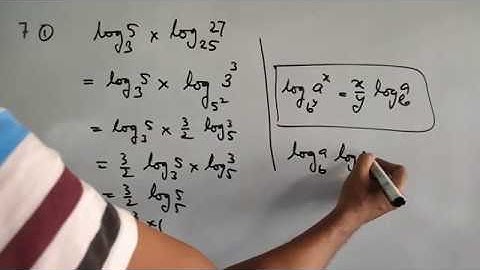 7 ① log₃⁵ × log₂₅²⁷
= log₃⁵ × log₅²3³
= log₃⁵ × 3/2 log₅³
= 3/2 log₃⁵ × log₅³
= 3/2 log₅⁵
log_{b^y} a^x = x/y log_b a
log_b a log